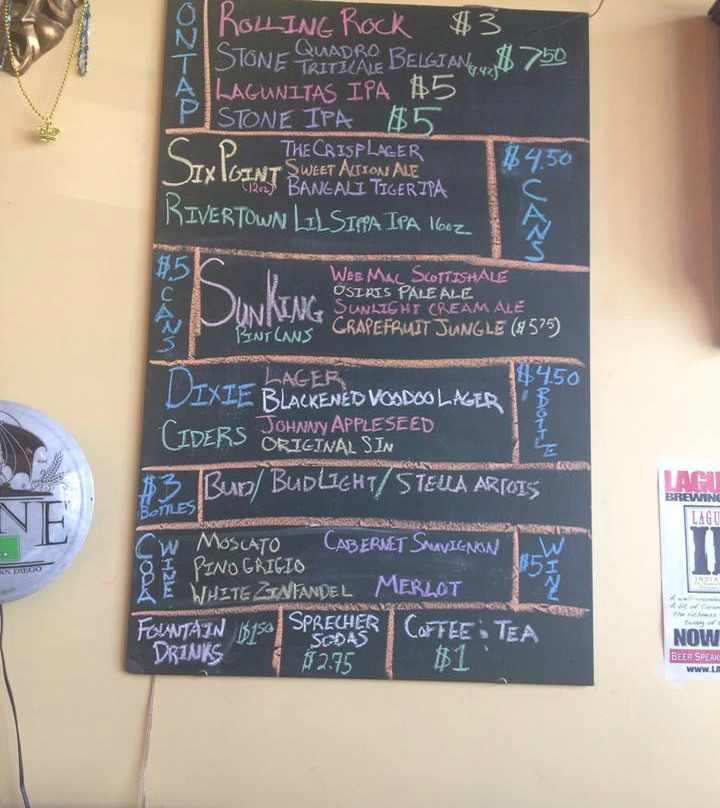 ON TAP
ROLLING ROCK $3
STONE QUADRO TRITICALE BELGIAN $7.50
LAGUNITAS IPA $5
STONE IPA $5
SIXPOINT (12oz) THE CRISP LAGER
SWEET ACTION ALE
BANGALI TIGER IPA
RIVERTOWN LIL SIPPA IPA 16oz
$4.50 CANS
$5 CANS
SUNKING PINT CANS
WEE MAC SCOTTISH ALE
OSIRIS PALE ALE
SUNLIGHT CREAM ALE
GRAPEFRUIT JUNGLE ($5.75)
DIXIE LAGER
BLACKENED VOODOO LAGER
CIDERS JOHNNY APPLESEED
ORIGINAL SIN
$4.50 BOTTLE
$3 BOTTLES
BUD/ BUDLIGHT/ STELLA ARTOIS
COPA WINE
MOSCATO CABERNET SAUVIGNON
PINO GRIGIO
WHITE ZINFANDEL MERLOT
$5 WINE
FOUNTAIN DRINKS $1.50
SPRECHER SODAS $2.75
COFFEE : TEA $1
NE
SAN DIEGO
LAGU
BREWING
LAGU
I
INDIA
NOW
BEER SPEAK
WWW.LA